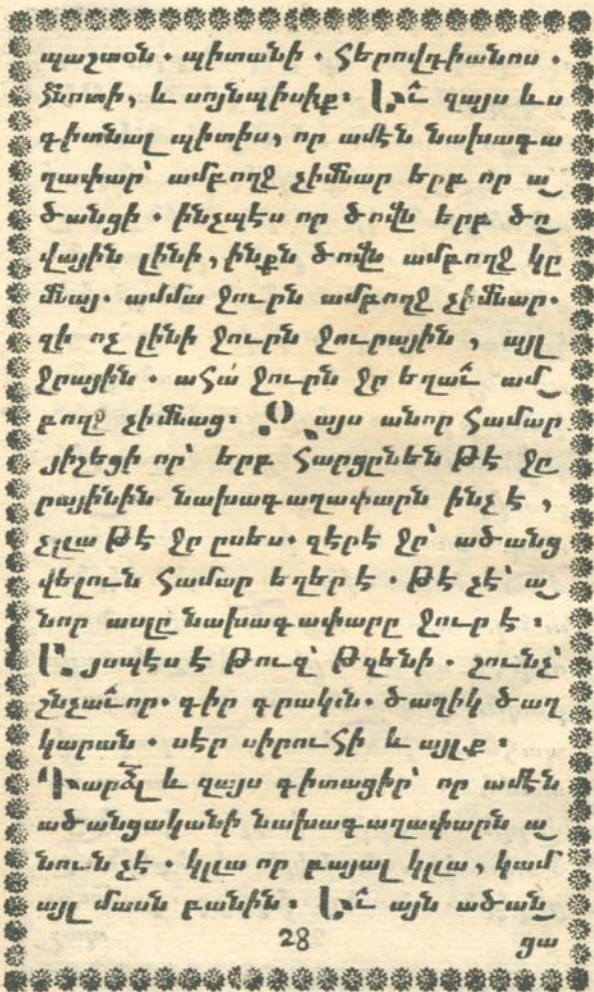 պաշտօն. պիտանի. Հերովդիանոս.
ծնօտի, և սոյնպիսիք: Նւ զայս ևս
գիտնալ պիտիս, որ ամէն նախագա
ղափար՝ ամբողջ չիմնար երբ որ ա
ծանցի. ինչպէս որ ծովն երբ ծո
վային լինի, ինքն ծովն ամբողջ կը
մնայ. ամմա ջուրն ամբողջ չիմնար.
զի ոչ լինի ջուրն ջուրային, այլ
ջրային. ահա ջուրն ջը եղաւ ամ
բողջ չիմնաց: Օայս անոր համար
յիշեցի որ՝ երբ հարցընեն թէ ջը
րայինին նախագաղափարն ինչ է,
չըլա թէ ջը ըսես. զէրէ ջը՝ ածանց
վելուն համար եղեր է. թէ չէ՝ ա
նոր ասլը նախագափարը ջուր է:
Նյսպէս է թուզ՝ թզենի. շունչ՝
շնչաւոր. գիր գրակն. ծաղիկ ծաղ
կարան. սէր սիրուհի և այլք:
Դարձլ և զայս գիտացիր՝ որ ամէն
ածանցականի նախագաղափարն ա
նուն չէ. կըլա որ բայալ կըլա, կամ
այլ մասն բանին: Նւ այն ածան
28 ցա